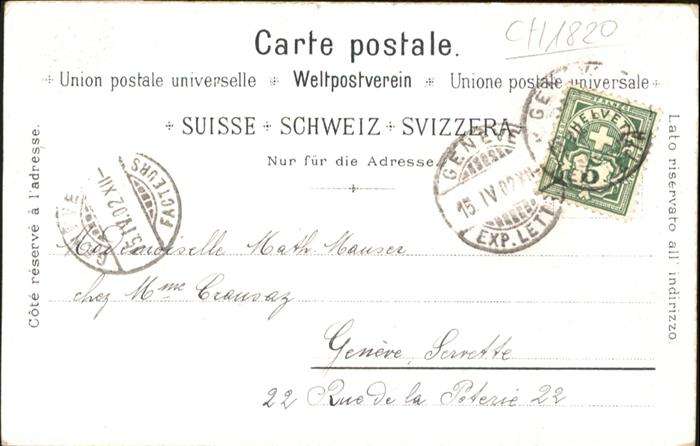 CH1820
Carte postale.
Union postale universelle Weltpostverein Unione postale universale
SUISSE SCHWEIZ SVIZZERA
Nur für die Adresse
Côté réservé à l'adresse.
Lato riservato all' indirizzo
HELVETIA
5
GENÈVE
15.IV.02.XII-
EXP.LETT
GENÈVE
15.IV.02.XII-
FACTEURS
Mademoiselle Math. Mauser
chez Mme Crausaz
Genève, Servette
22 Rue de la Poterie 22